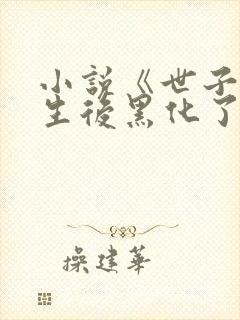 小説《世子
生後黑化了
操建華